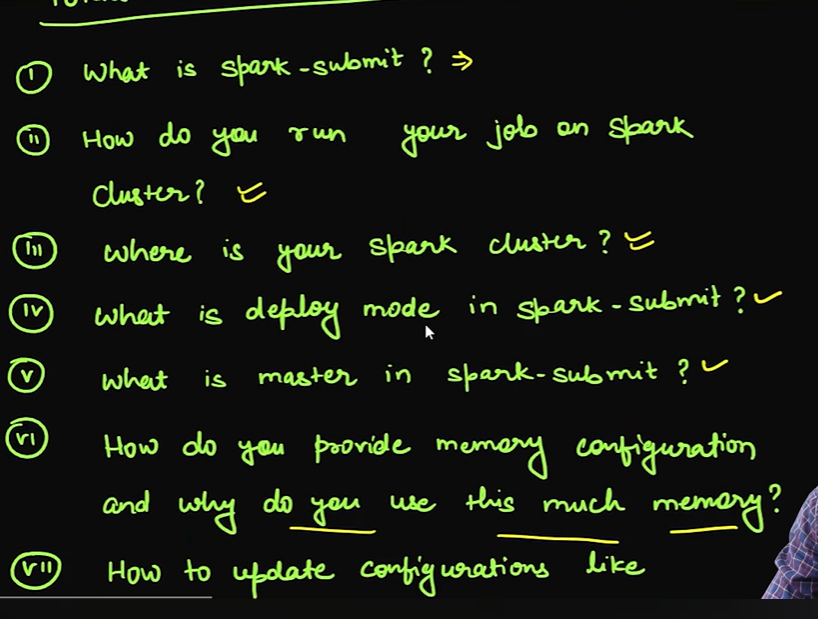 (i) What is spark-submit ? ⇒
(ii) How do you run your job on spark
cluster?
(iii) where is your spark cluster ?
(iv) what is deploy mode in spark-submit ? ✓
(v) what is master in spark-submit ? ✓
(vi) How do you provide memory configuration
and why do you use this much memory?
(vii) How to update configurations like